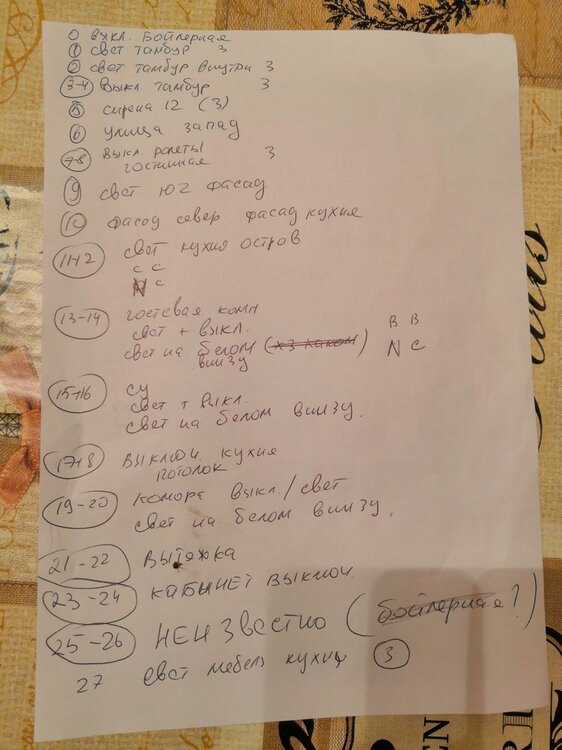 0 выкл. Бойлерная
1 свет тамбур 3
2 свет тамбур внутри 3
3-4 Выкл тамбур 3
5 сирена 12 (3)
6 улица запад
7-8 выкл ролеты 3
гостинная
9 свет юг фасад
10 фасад север фасад кухня
11-12 свет кухня остров
с с
N с
13-14 гостевая комн
свет + выкл.
свет на белом (хз каком) В В
внизу N С
15-16 су
свет + выкл.
свет на белом внизу.
17-18 выключ. кухня
потолок
19-20 комора выкл/свет
свет на белом внизу.
21-22 вытяжка
23-24 кабинет выключ.
25-26 неизвестно (бойлерная?)
27 свет мебель кухня 3
Paris
EN